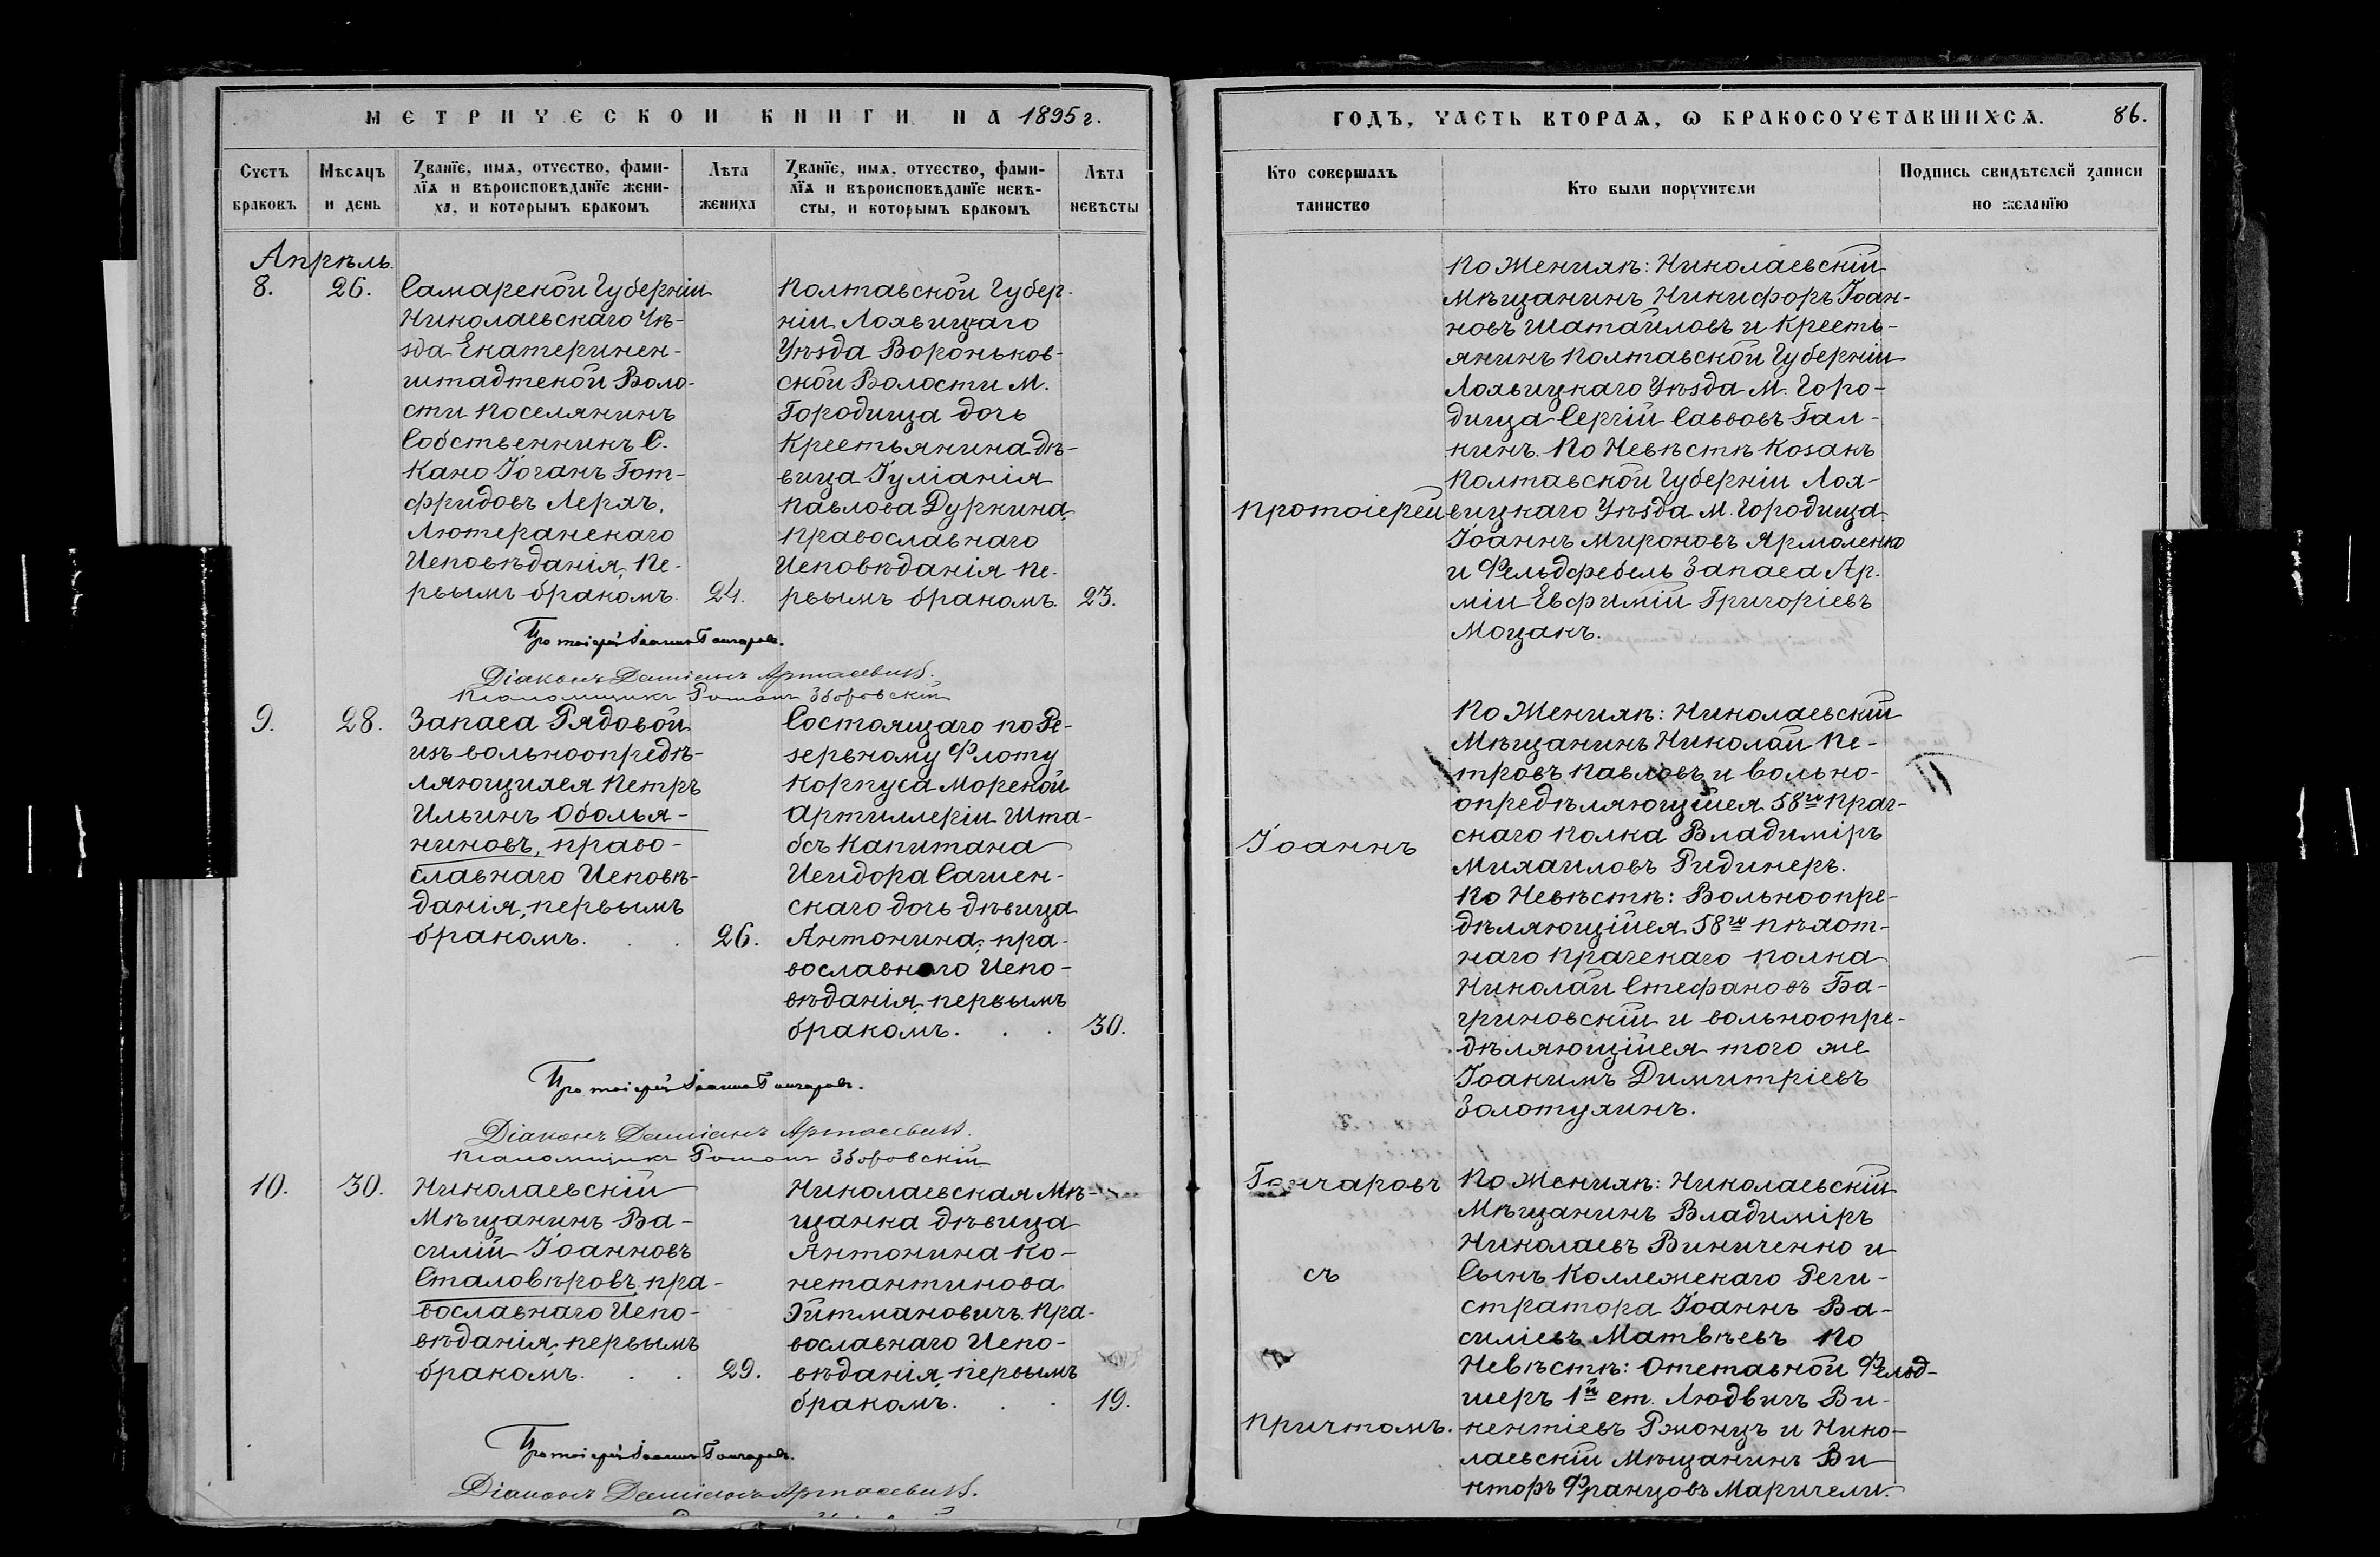 МЕТРИЧЕСКОЙ КНИГИ НА 1895 г.
Счетъ браковъ
Мѣсяцъ и день
Званїе, имѧ, отчество, фами-
лїѧ и вѣроисповѣданїе жени-
ха, и которымъ бракомъ
Лѣта жениха
Званїе, имѧ, отчество, фами-
лїѧ и вѣроисповѣданїе невѣ-
сты, и которымъ бракомъ
Лѣта невѣсты
Апрѣль.
8.
26.
Самарской Губерніи
Николаевскаго Уѣ-
зда Екатеринен-
штадтской Воло-
сти поселянинъ
Собственникъ С.
Кано Іоганъ Гот-
фридовъ Лерхъ,
Лютеранскаго
Исповѣданія, пе-
рвымъ бракомъ.
24.
Полтавской Губер-
ніи Лохвицкаго
Уѣзда Вороньков-
ской Волости М.
Городища дочь
Крестьянина дѣ-
вица Іуліанія
Павлова Дуркина,
Православнаго
Исповѣданія пе-
рвымъ бракомъ.
23.
Протоіерей Іоаннъ Гончаровъ.
Діаконъ Даміанъ Артасевичъ.
Псаломщикъ Романъ Зборовскій
9.
28.
Запаса Рядовой
изъ вольноопредѣ-
ляющихся Петръ
Ильинъ Оболья-
ниновъ, право-
славнаго Исповѣ-
данія, первымъ
бракомъ. . .
26.
Состоящаго по Ре-
зервному Флоту
Корпуса Морской
Артиллеріи Шта-
бсъ Капитана
Исидора Сагиен-
скаго дочь дѣвица
Антонина, пра-
вославнаго Испо-
вѣданія, первымъ
бракомъ. . .
30.
Протоіерей Іоаннъ Гончаровъ.
Діаконъ Даміанъ Артасевичъ.
Псаломщикъ Романъ Зборовскій
10.
30.
Николаевскій
Мѣщанинъ Ва-
силій Іоанновъ
Сталовѣровъ, пра-
вославнаго Испо-
вѣданія, первымъ
бракомъ. . .
29.
Николаевская Мѣ-
щанка дѣвица
Антонина Ко-
нстантинова
Хитмановичъ. Пра-
вославнаго Испо-
вѣданія, первымъ
бракомъ. . .
19.
Протоіерей Іоаннъ Гончаровъ.
Діаконъ Даміанъ Артасевичъ.
ГОДЪ, ЧАСТЬ ВТОРАѦ, Ѡ БРАКОСОЧЕТАВШИХСѦ.
86.
Кто совершалъ таинство
Кто были поручители
Подпись свидѣтелей записи
по желанїю
Протоіерей
Іоаннъ
Гончаровъ
съ
Причтомъ.
По Женихѣ: Николаевскій
Мѣщанинъ Никифоръ Іоан-
новъ Шатайловъ и Кресть-
янинъ Полтавской Губерніи
Лохвицкаго Уѣзда М. Горо-
дища Сергій Саввовъ Гал-
кинъ. По Невѣстѣ Козакъ
Полтавской Губерніи Лох-
вицкаго Уѣзда М. Городища
Іоаннъ Мироновъ Ярмоленко
и Фельдфебель Запаса Ар-
міи Евфимій Григоріевъ
Моцакъ.
По Женихѣ: Николаевскій
Мѣщанинъ Николай Пе-
тровъ Павловъ и вольно-
опредѣляющійся 58го Праг-
скаго полка Владиміръ
Михаиловъ Ридигеръ.
По Невѣстѣ: Вольноопре-
дѣляющійся 58го пѣхот-
наго Прагскаго полка
Николай Стефановъ Ба-
гриновскій и вольноопре-
дѣляющійся того же
Іоакимъ Димитріевъ
Золотухинъ.
По Женихѣ: Николаевскій
Мѣщанинъ Владиміръ
Николаевъ Виниченко и
Сынъ Коллежскаго Реги-
стратора Іоаннъ Ва-
силіевъ Матвѣевъ По
Невѣстѣ: Отставной Фельд-
шеръ 1й ст. Людвигъ Ви-
кентіевъ Ржонцъ и Нико-
лаевскій Мѣщанинъ Ви-
кторъ Францовъ Маричели.